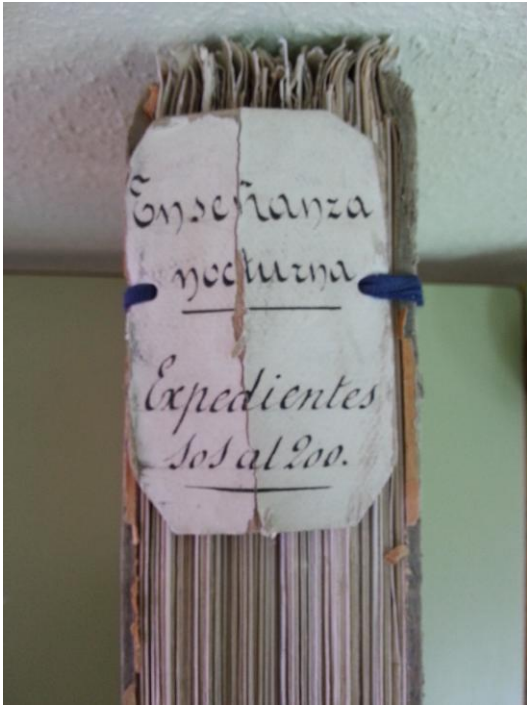 Enseñanza
nocturna
Expedientes
101 al 200.